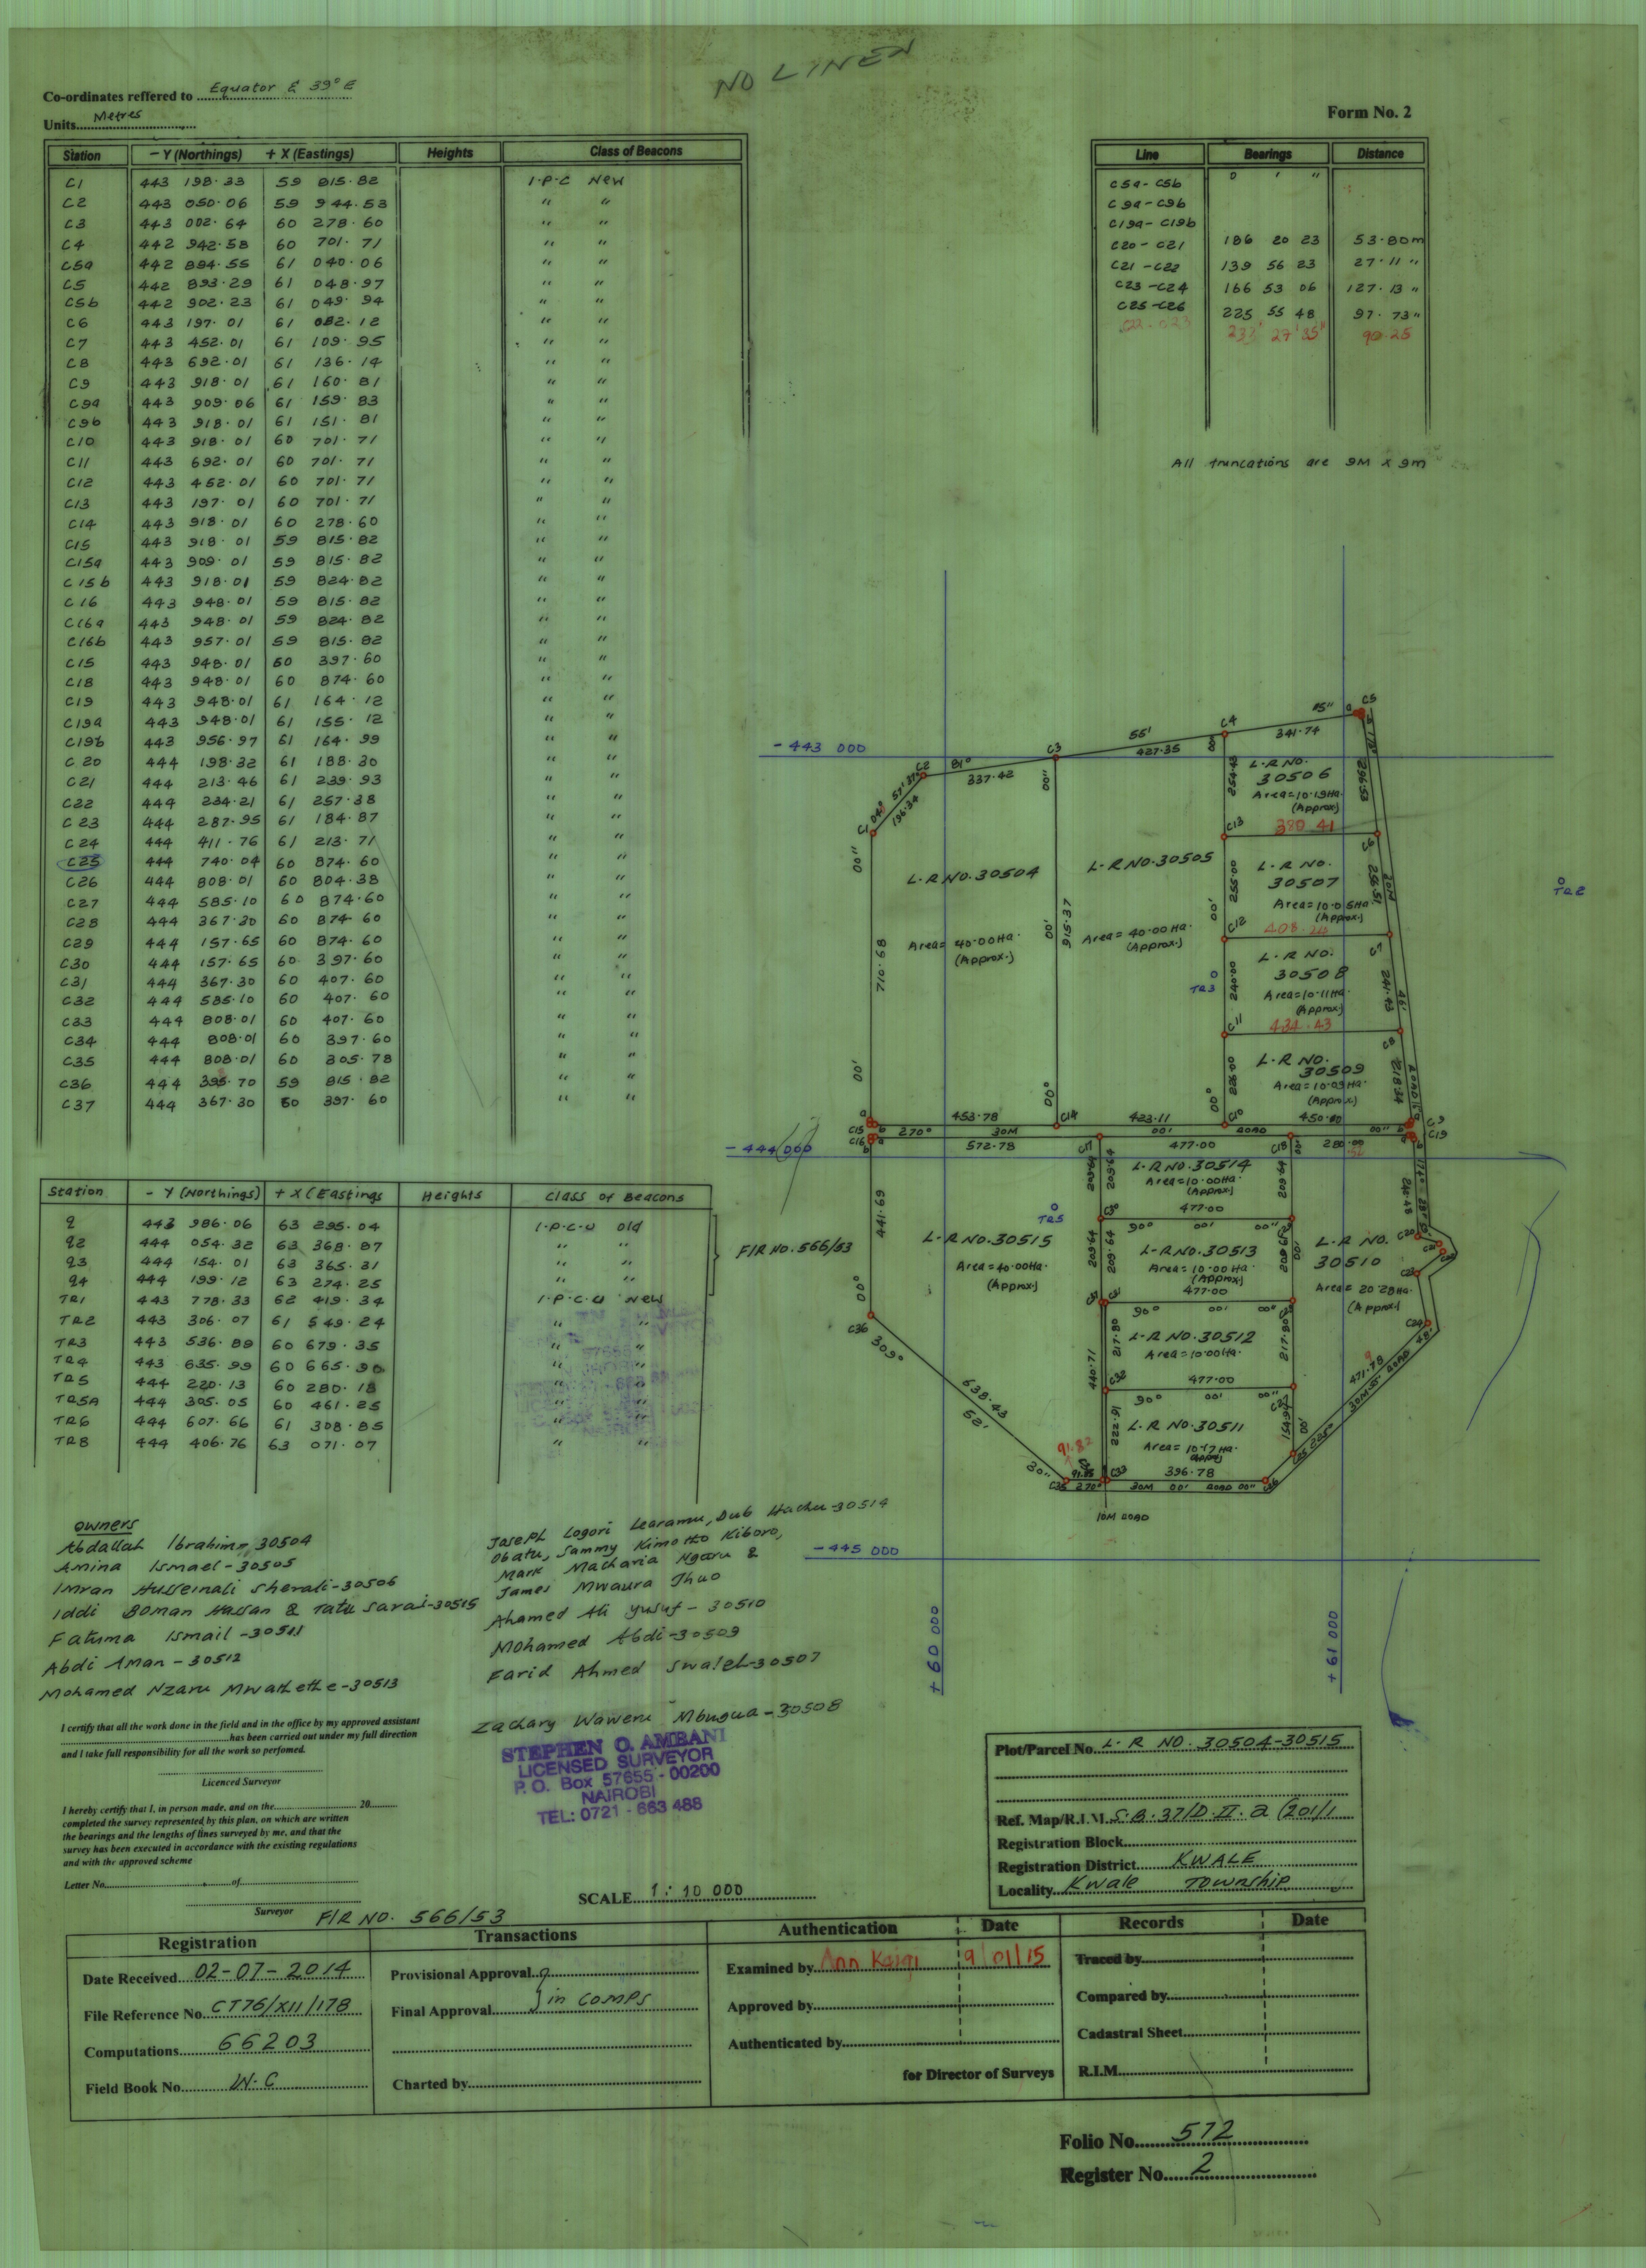 NO LINEN
Co-ordinates reffered to Equator & 39° E
Units Metres
Form No. 2
Station - Y (Northings) + X (Eastings) Heights Class of Beacons
C1 443 198.33 59 815.82 I.P.C New
C2 443 050.06 59 944.53 " "
C3 443 002.64 60 278.60 " "
C4 442 942.58 60 701.71 " "
C5a 442 894.55 61 040.06 " "
C5 442 893.29 61 048.97 " "
C5b 442 902.23 61 049.94 " "
C6 443 197.01 61 082.12 " "
C7 443 452.01 61 109.95 " "
C8 443 692.01 61 136.14 " "
C9 443 918.01 61 160.81 " "
C9a 443 909.06 61 159.83 " "
C9b 443 918.01 61 151.81 " "
C10 443 918.01 60 701.71 " "
C11 443 692.01 60 701.71 " "
C12 443 452.01 60 701.71 " "
C13 443 197.01 60 701.71 " "
C14 443 918.01 60 278.60 " "
C15 443 918.01 59 815.82 " "
C15a 443 909.01 59 815.82 " "
C15b 443 918.01 59 824.82 " "
C16 443 948.01 59 815.82 " "
C16a 443 948.01 59 824.82 " "
C16b 443 957.01 59 815.82 " "
C15 443 948.01 60 397.60 " "
C18 443 948.01 60 874.60 " "
C19 443 948.01 61 164.12 " "
C19a 443 948.01 61 155.12 " "
C19b 443 956.97 61 164.99 " "
C20 444 198.32 61 188.30 " "
C21 444 213.46 61 239.93 " "
C22 444 234.21 61 257.38 " "
C23 444 287.95 61 184.87 " "
C24 444 411.76 61 213.71 " "
C25 444 740.04 60 874.60 " "
C26 444 808.01 60 804.38 " "
C27 444 585.10 60 874.60 " "
C28 444 367.30 60 874.60 " "
C29 444 157.65 60 874.60 " "
C30 444 157.65 60 397.60 " "
C31 444 367.30 60 407.60 " "
C32 444 585.10 60 407.60 " "
C33 444 808.01 60 407.60 " "
C34 444 808.01 60 397.60 " "
C35 444 808.01 60 305.78 " "
C36 444 395.70 59 815.82 " "
C37 444 367.30 60 397.60 " "
Line Bearings Distance
C5a-C5b ° ' "
C9a-C9b
C19a-C19b
C20-C21 186 20 23 53.80m
C21-C22 139 56 23 27.11 "
C23-C24 166 53 06 127.13 "
C25-C26 225 55 48 97.73 "
C22-C23 233° 27' 35" 90.25
All truncations are 9M x 9m
Station - Y (Northings) + X (Eastings Heights Class of Beacons
q 443 986.06 63 295.04 I.P.C.U old
q2 444 054.32 63 368.87 " "
q3 444 154.01 63 365.31 " "
q4 444 199.12 63 274.25 " "
F/R NO. 566/53
TR1 443 778.33 62 419.34 I.P.C.U New
TR2 443 306.07 61 549.24 " "
TR3 443 536.89 60 679.35 " "
TR4 443 635.99 60 665.90 " "
TR5 444 220.13 60 280.18 " "
TR5A 444 305.05 60 461.25 " "
TR6 444 607.66 61 308.85 " "
TR8 444 406.76 63 071.07 " "
- 443 000
C1 04° 57' 37" 196.34 C2
81° 337.42 C3
55' 427.35 C4
15" 341.74 a C5
L.R NO. 30504
Area= 40.00Ha.
(Approx.)
L.R NO. 30505
Area= 40.00 Ha.
(Approx.)
L.R NO.
30506
Area=10.19Ha.
(Approx)
C13 380.41 C6
L.R NO.
30507
Area=10.05Ha
(Approx.)
C12 408. C7
L.R NO.
30508
Area=10.11Ha.
(Approx.)
C11 434.43 C8
L.R NO.
30509
Area=10.03Ha.
(Approx.)
710.68
915.37
255.00
240.00
226.00
TR2
TR3
TR5
C15 453.78 C14 423.11 C10 450.10 C9
270° 30M 00' ROAD 00"
C16 572.78 C17 477.00 C18 280.00 C19
- 444 000
L.R NO. 30514
Area=10.00Ha.
(Approx)
477.00
C30 90° 00' 00"
L.R NO. 30515
Area=40.00Ha
(Approx.)
L.R NO. 30513
Area= 10.00 Ha.
(Approx.)
477.00
90° 00' 00"
L.R NO. 30512
Area=10.00Ha.
477.00
C32 90° 00' 00"
L.R NO. 30511
Area= 10.17Ha.
(Approx)
396.78
L.R NO.
30510
Area= 20.28Ha.
(Approx)
441.69
209.64
217.80
222.91
440.71
C36 309° 638.43 52' 30"
91.82
C35 270° C33 30M 00' ROAD 00" C26
471.78 30M ROAD
10M ROAD
- 445 000
+ 60 000
+ 61 000
OWNERS
Abdallah Ibrahim-30504
Amina Ismael-30505
Imran Husseinali Sherali-30506
Iddi Boman Hassan & Tatu Sarai-30515
Fatuma Ismail-30511
Abdi Aman-30512
Mohamed Nzaru Mwathethe-30513
Joseph Logori Learamu, Dub Hachu-30514
Obatu, Sammy Kimotho Kiboro,
Mark Macharia Ngaru &
James Mwaura Thuo
Ahamed Ali Yusuf-30510
Mohamed Abdi-30509
Farid Ahmed Swaleh-30507
Zachary Waweru Mbugua-30508
I certify that all the work done in the field and in the office by my approved assistant
has been carried out under my full direction
and I take full responsibility for all the work so perfomed.
Licenced Surveyor
I hereby certify that I, in person made, and on the 20
completed the survey represented by this plan, on which are written
the bearings and the lengths of lines surveyed by me, and that the
survey has been executed in accordance with the existing regulations
and with the approved scheme
Letter No. of
Surveyor
STEPHEN O. AMBANI
LICENSED SURVEYOR
P. O. Box 57655 - 00200
NAIROBI
TEL: 0721 - 663 488
Plot/Parcel No. L. R NO. 30504-30515
Ref. Map/R.I.M. S.B.37/D.II.a (201/1
Registration Block
Registration District KWALE
Locality Kwale Township
F/R NO. 566/53
SCALE 1:10 000
Registration
Date Received 02-07-2014
File Reference No. CT76/XII/178
Computations 66203
Field Book No. W.C
Transactions
Provisional Approval
Final Approval in comps
Charted by
Authentication Date
Examined by Ann 9/01/15
Approved by
Authenticated by
for Director of Surveys
Records Date
Traced by
Compared by
Cadastral Sheet
R.I.M.
Folio No. 572
Register No. 2